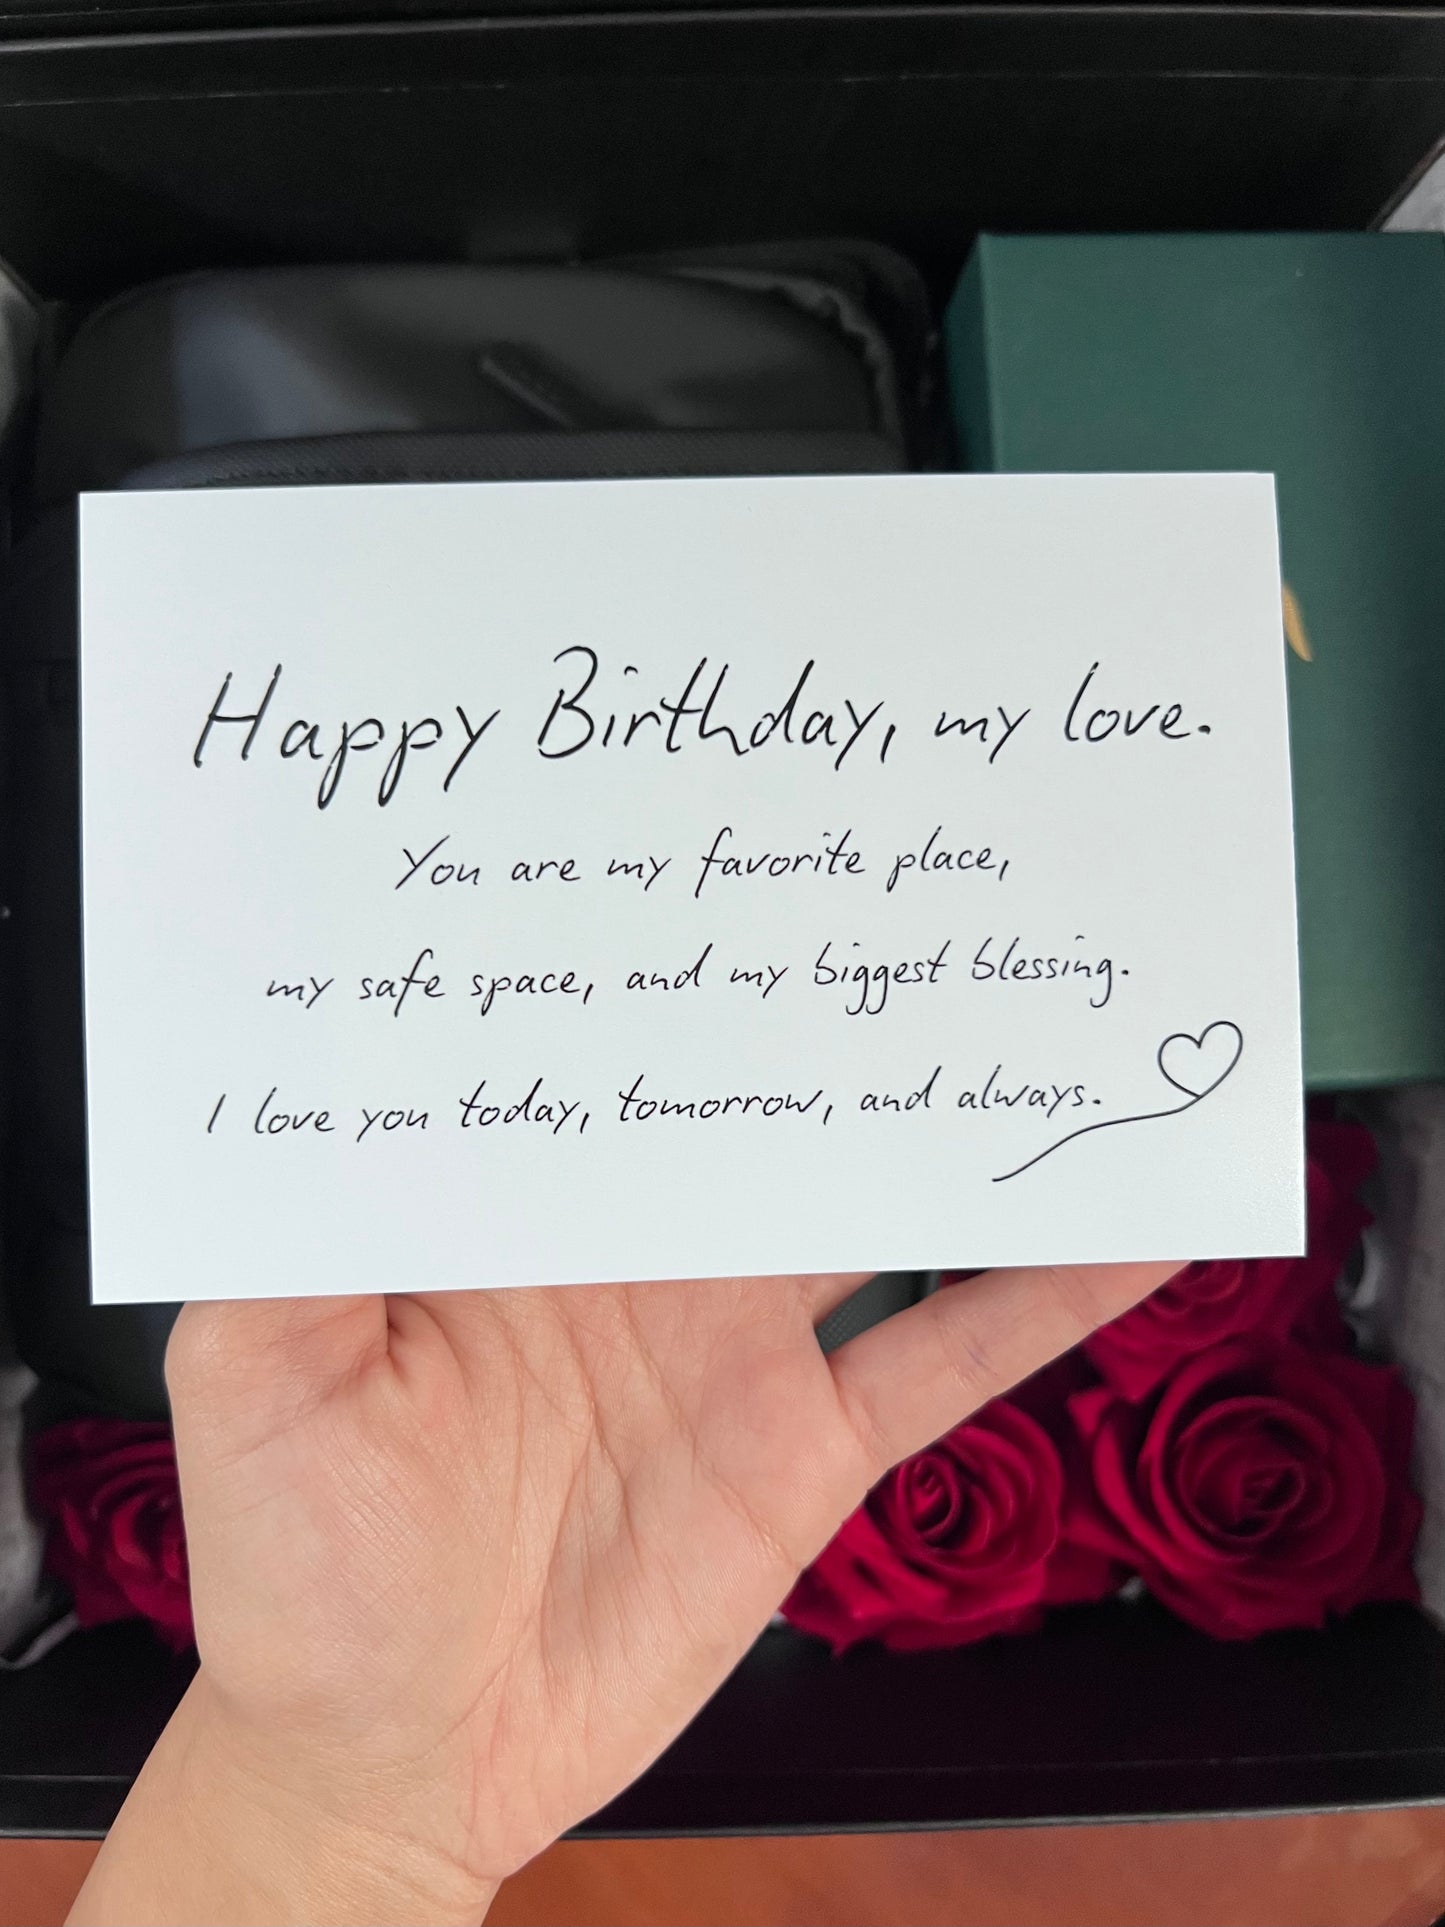 Happy Birthday, my love.
You are my favorite place,
my safe space, and my biggest blessing.
I love you today, tomorrow, and always.